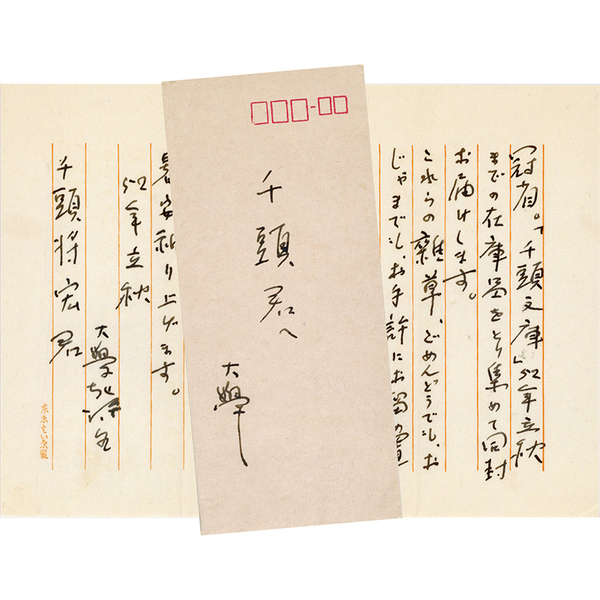 冠省。「千頭文庫」52年立秋
までの在庫品をとり集めて同封
お届けします。
これらの雜草、ごめんどうでも、お
じゃまでも、お手許にお留め置
千頭君へ
大學
祈り上げます。
52年立秋
大學
千頭将宏君